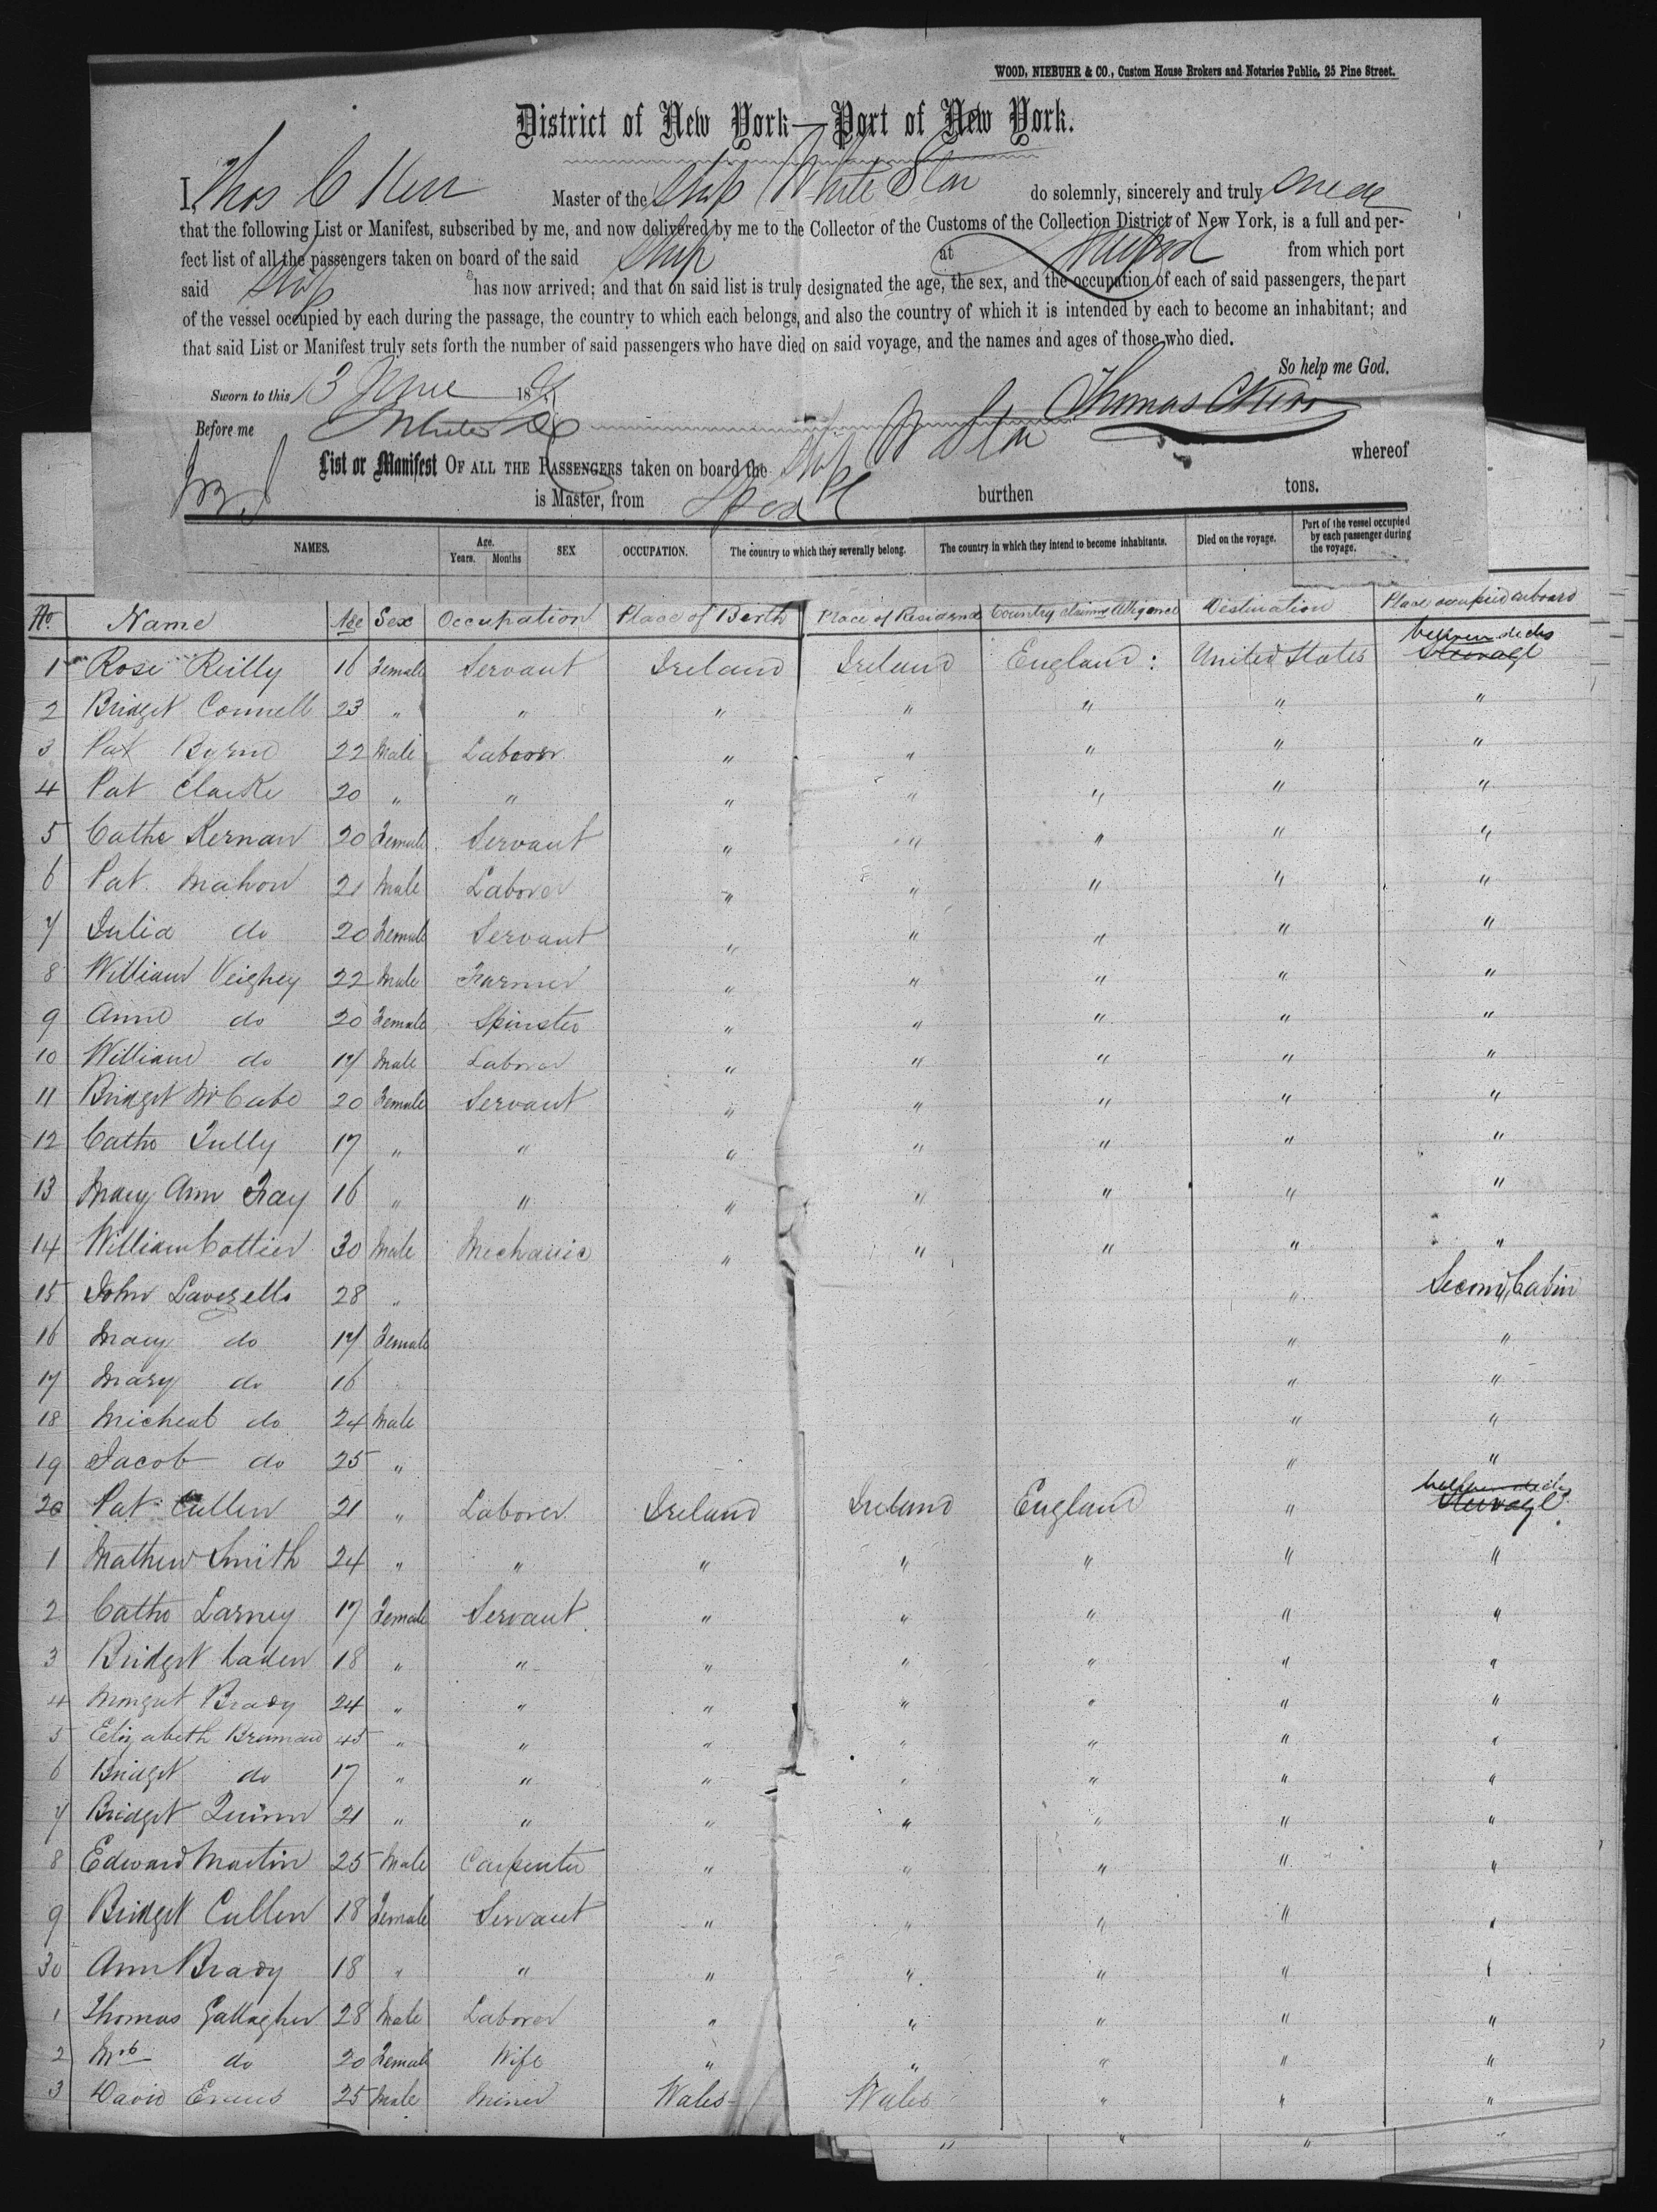 WOOD, NIEBUHR & CO., Custom House Brokers and Notaries Public, 25 Pine Street.
District of New York—Port of New York.
I, Thos C Kerr Master of the Ship White Star do solemnly, sincerely and truly
that the following List or Manifest, subscribed by me, and now delivered by me to the Collector of the Customs of the Collection District of New York, is a full and per-
fect list of all the passengers taken on board of the said Ship at from which port
said Ship has now arrived; and that on said list is truly designated the age, the sex, and the occupation of each of said passengers, the part
of the vessel occupied by each during the passage, the country to which each belongs, and also the country of which it is intended by each to become an inhabitant; and
that said List or Manifest truly sets forth the number of said passengers who have died on said voyage, and the names and ages of those who died.
So help me God.
Sworn to this 13 June 18
Thomas C Kerr
Before me
List or Manifest OF ALL THE PASSENGERS taken on board the Ship W Star whereof
is Master, from burthen tons.
NAMES. Age. Years. Months SEX OCCUPATION. The country to which they severally belong. The country in which they intend to become inhabitants. Died on the voyage. Part of the vessel occupied by each passenger during the voyage.
No. Name Age Sex Occupation Place of Berth Place of Residence Country claims Allegance Destination Place occupied aboard
between decks
1 Rose Reilly 16 Female Servant Ireland Ireland England: United States Steerage
2 Bridget Connell 23 " " " " " " "
3 Pat Byrne 22 Male Labeorer " " " " "
4 Pat Clarke 20 " " " " " " "
5 Cathe Kernan 20 Female Servant " " " " "
6 Pat. Mahon 21 Male Laborer " " " " "
7 Julia do 20 Female Servant " " " " "
8 William Veighey 22 Male Farmer " " " " "
9 Anne do 20 Female Spinster " " " " "
10 William do 17 Male Laborer " " " " "
11 Bridget McCabe 20 Female Servant " " " " "
12 Cathe Tully 17 " " " " " " "
13 Mary Ann Fray 16 " " " " " " "
14 William Cottier 30 Male Mechanic " " " " "
15 John Lavezello 28 " " Second Cabin
16 Mary do 17 Female " "
17 Mary do 16 " " "
18 Micheal do 24 Male " "
19 Jacob do 25 " " "
between decks
20 Pat Cullen 21 " Laborer Ireland Ireland England " Steerage
1 Mathew Smith 24 " " " " " " "
2 Cathe Larney 17 Female Servant " " " " "
3 Bridget Laden 18 " " " " " " "
4 Margret Brady 24 " " " " " " "
5 Elizabeth Brennan 45 " " " " " " "
6 Bridget do 17 " " " " " " "
7 Bridget Quinn 21 " " " " " " "
8 Edward Martin 25 Male Carpenter " " " " "
9 Bridget Cullen 18 Female Servant " " " " "
30 Ann Brady 18 " " " " " " "
1 Thomas Gallagher 28 Male Laborer " " " " "
2 Mrs do 20 Female Wife " " " " "
3 David Evans 25 Male Miner Wales Wales " " "
" " " "